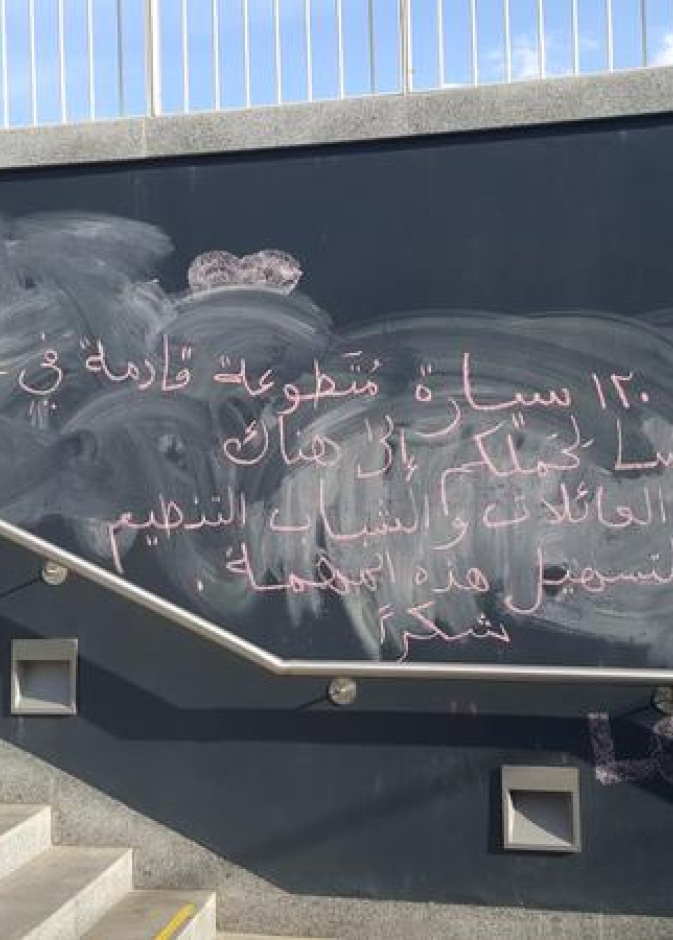 ١٢٠ سيارة مُتَطوعة قادمة في
لحَملكم إلى هناك
العائلات والشباب التنظيم
لتسهيل هذه المهمة .
شكراً